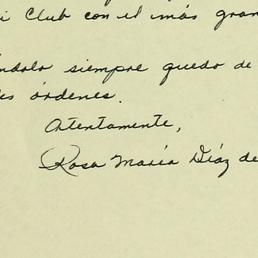 i Club con el más gran
ándolo siempre quedo de
es órdenes.
Atentamente,
Rosa María Díaz de